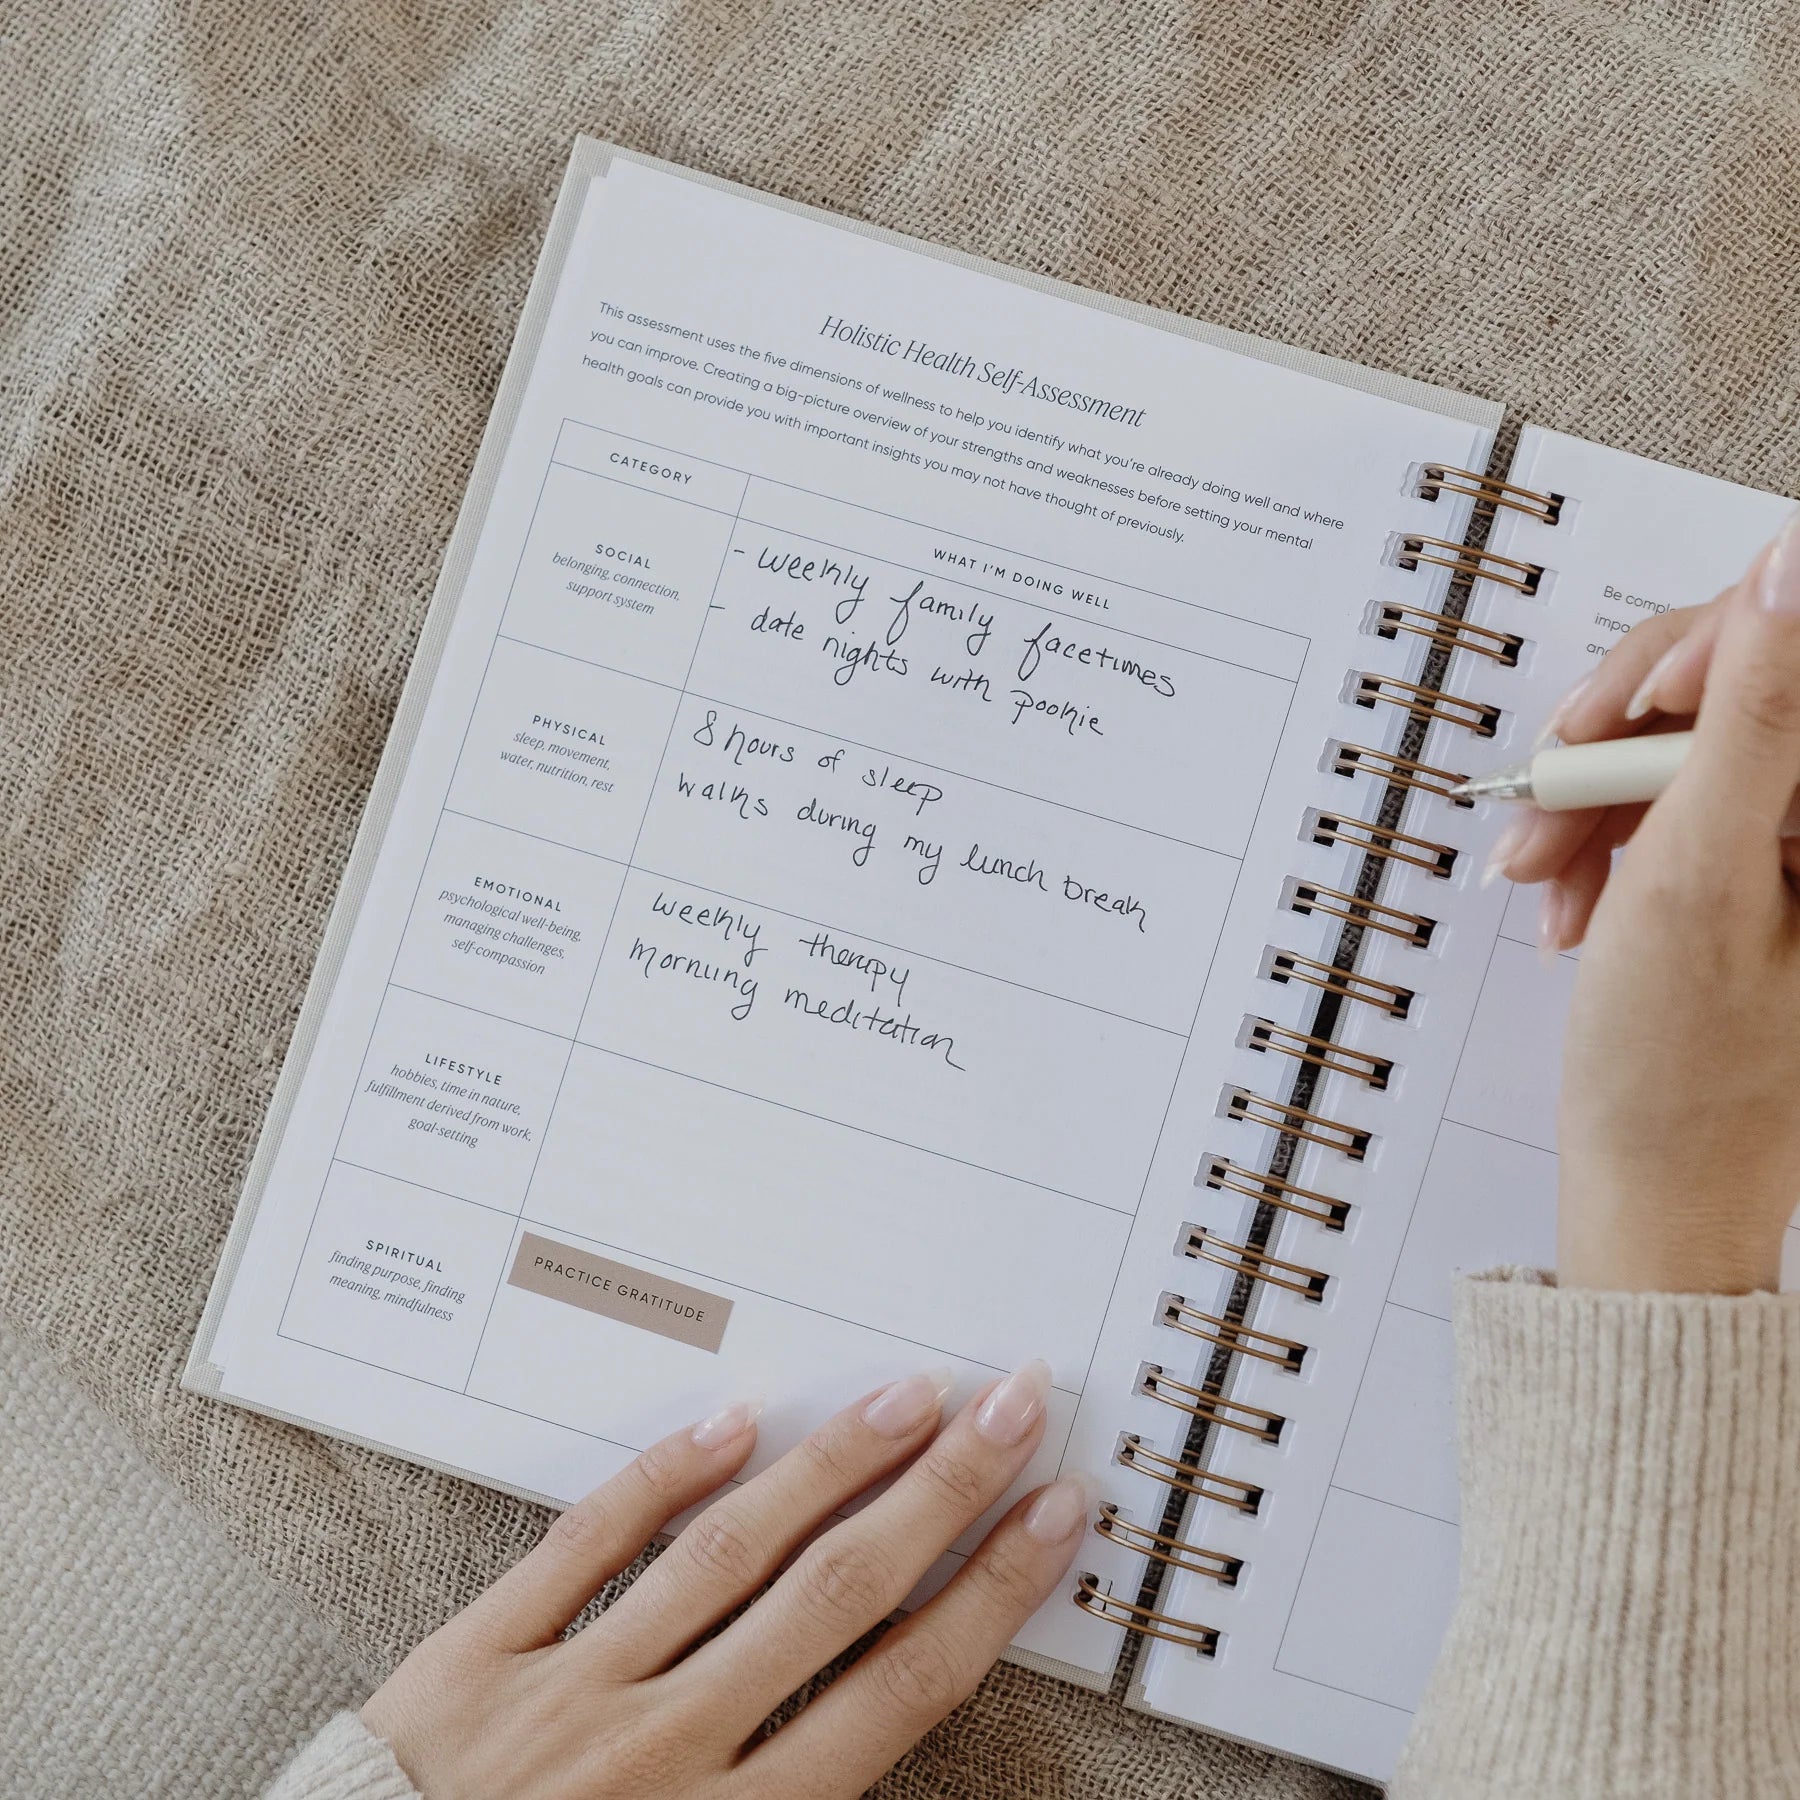 Holistic Health Self-Assessment
This assessment uses the five dimensions of wellness to help you identify what you're already doing well and where
you can improve. Creating a big-picture overview of your strengths and weaknesses before setting your mental
health goals can provide you with important insights you may not have thought of previously.
CATEGORY
WHAT I'M DOING WELL
SOCIAL
belonging, connection,
support system
- weekly family facetimes
- date nights with pookie
PHYSICAL
sleep, movement,
water, nutrition, rest
8 hours of sleep
walks during my lunch break
EMOTIONAL
psychological well-being,
managing challenges,
self-compassion
weekly therapy
morning meditation
LIFESTYLE
hobbies, time in nature,
fulfillment derived from work,
goal-setting
SPIRITUAL
finding purpose, finding
meaning, mindfulness
PRACTICE GRATITUDE
Be